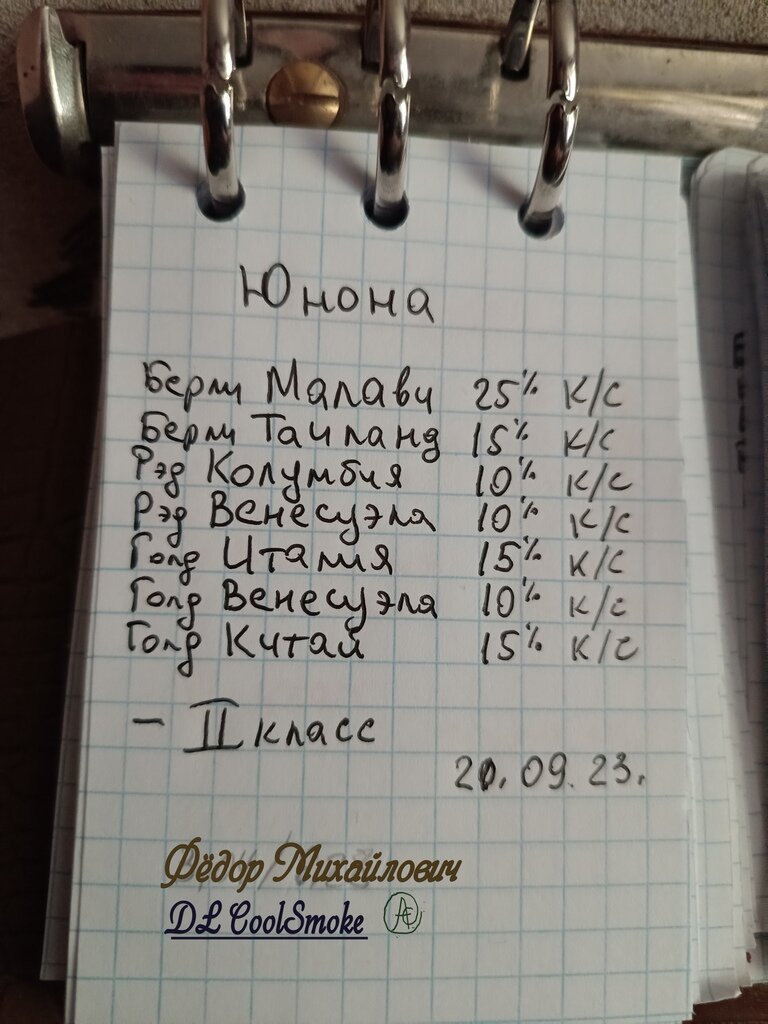 Юнона
Берли Малави 25% К/С
Берли Таиланд 15% К/С
Рэд Колумбия 10% К/С
Рэд Венесуэла 10% К/С
Голд Италия 15% К/С
Голд Венесуэла 10% К/С
Голд Китай 15% К/С
- II класс
20.09.23.
Фёдор Михайлович
DL CoolSmoke